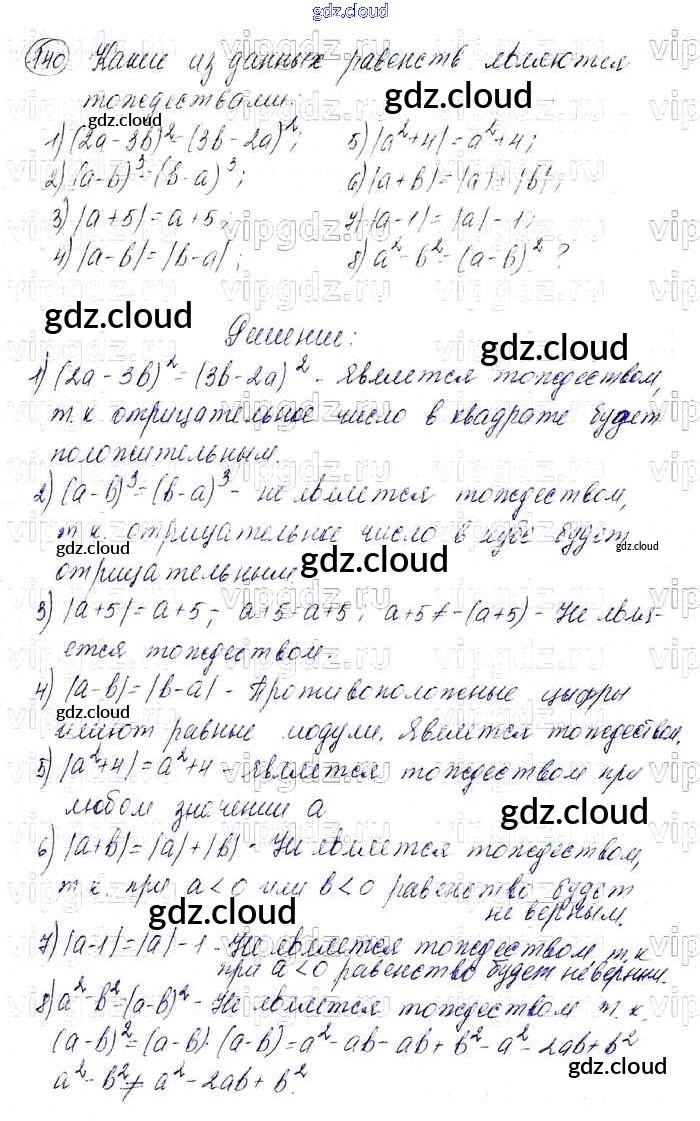 gdz.cloud
140 Какие из данных равенств являются
тождествами:
1) (2a - 3b)² = (3b - 2a)²; 5) |a² + 4| = a² + 4;
2) (a - b)³ = (b - a)³; 6) |a + b| = |a| + |b|;
3) |a + 5| = a + 5; 7) |a - 1| = |a| - 1;
4) |a - b| = |b - a|; 8) a² - b² = (a - b)²?
Решение:
1) (2a - 3b)² = (3b - 2a)² - является тождеством,
т.к отрицательное число в квадрате будет
положительным.
2) (a - b)³ = (b - a)³ - не является тождеством,
т.к. отрицательное число в кубе будет
отрицательным
3) |a + 5| = a + 5 -; a + 5 = a + 5; a + 5 ≠ -(a + 5) - Не явля-
ется тождеством.
4) |a - b| = |b - a| - Противоположные цифры
имеют равные модули. Является тождеством.
5) |a² + 4| = a² + 4 - является тождеством при
любом значении a
6) |a + b| = |a| + |b| - Не является тождеством,
т.к. при a < 0 или b < 0 равенство будет
не верным.
7) |a - 1| = |a| - 1 - Не является тождеством, т.к
при a < 0 равенство будет неверным.
8) a² - b² = (a - b)² - Не является тождеством т.к.
(a - b)² = (a - b) · (a - b) = a² - ab - ab + b² = a² - 2ab + b²
a² - b² ≠ a² - 2ab + b².